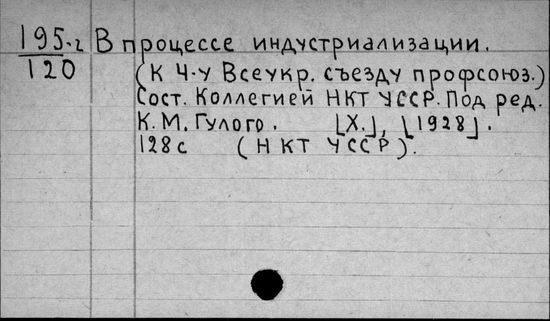 195-г В процессе индустриализации.
120 (К 4-у Всеукр. съезду профсоюз.)
Сост. Коллегией НКТ УССР. Под ред.
К. М. Гулого. [Х.], [1928].
128с (НКТ УССР).